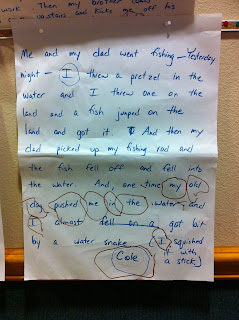 work. Then my brother
and kicks me off his
Me and my dad went fishing – Yesterday
night – I threw a pretzel in the
water and I threw one on the
land and a fish jumped on the
land and got it. And then my
dad picked up my fishing rod and
the fish fell off and fell into
the water. And, one time my old
dog pushed me in the water and
I almost fell on a got bit
by a water snake (I squished
it with
a stick.)
Cole